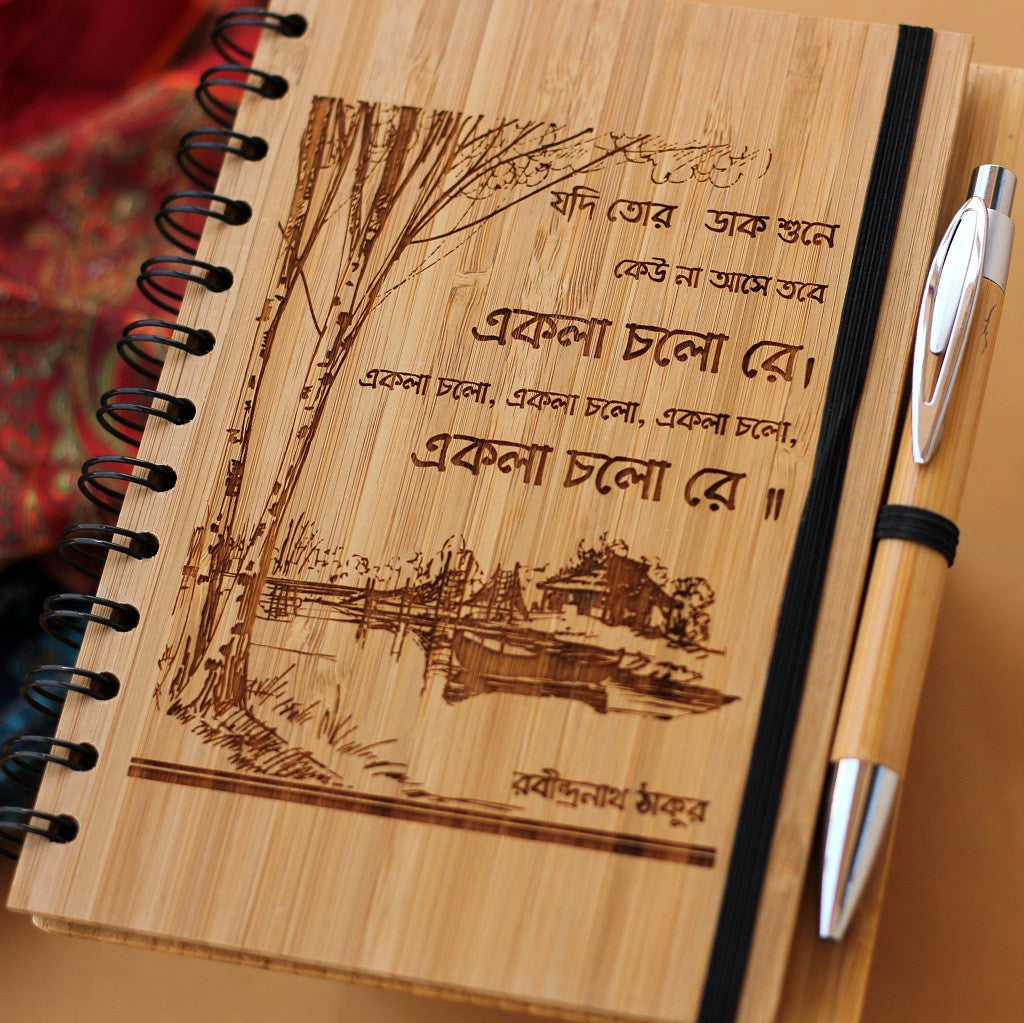 যদি তোর ডাক শুনে
কেউ না আসে তবে
একলা চলো রে।
একলা চলো, একলা চলো, একলা চলো,
একলা চলো রে ॥
রবীন্দ্রনাথ ঠাকুর